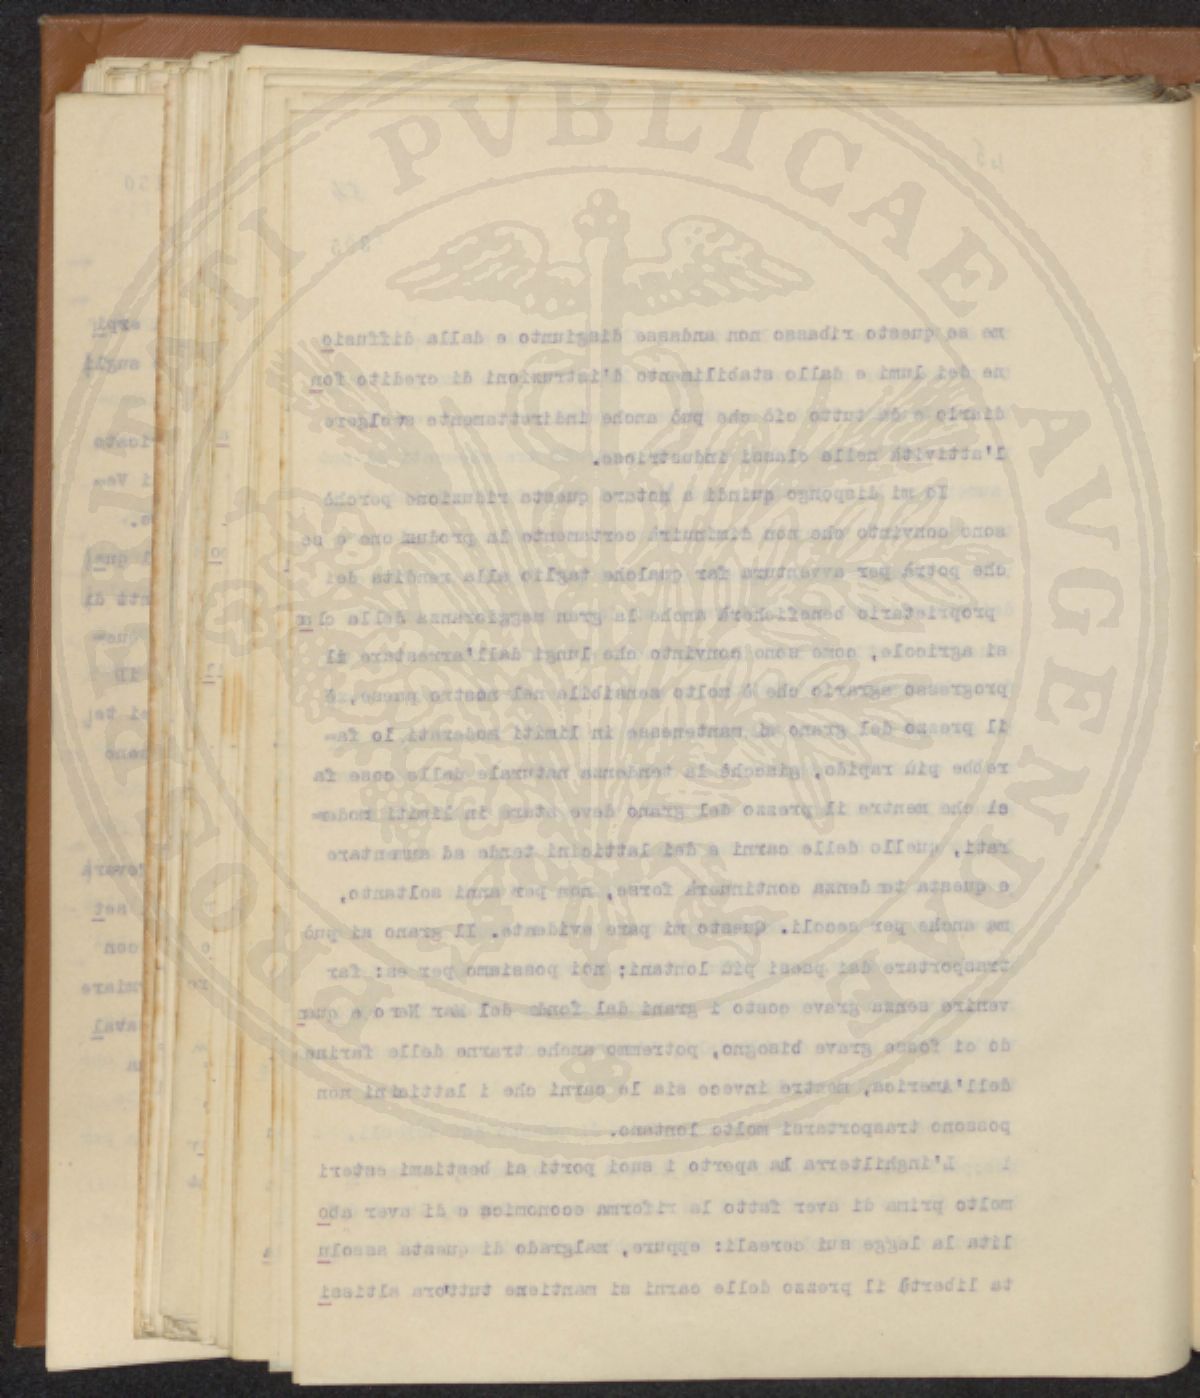 PROSPERITATI PVBLICAE AVGENDAE
45
me se questo ribasso non andasse disgiunto e dalla diffusio
ne dei lumi e dallo stabilimento d'istruzioni di credito fon
diario e da tutto ciò che può anche indirettamente svolgere
l'attività nelle classi industriose.
Io mi dispongo quindi a notare questa riduzione perchè
sono convinto che non diminuirà certamente la produzione e se
che potrà per avventura far qualche taglio alla rendita dei
proprietario beneficherà anche la gran maggioranza della clas
si agricole, come sono convinto che lungi dall'arrestare il
progresso agrario che è molto sensibile nel nostro paese, è
il prezzo del grano si mantenesse in limiti moderati lo fa-
rebbe più rapido, giacchè la tendenza naturale delle cose fa
si che mentre il prezzo del grano deve stare in limiti mode-
rati, quello delle carni e dei latticini tende ad aumentare
e questa tendenza continuerà forse, non per anni soltanto,
ma anche per secoli. Questo mi pare evidente. Il grano si può
trasportare dai paesi più lontani; noi possiamo per es: far
venire senza grave costo i grani dal fondo del Mar Nero e quan
do ci fosse grave bisogno, potremmo anche trarne delle farine
dell'America, mentre invece sia le carni che i latticini non
possono trasportarsi molto lontano.
L'inghilterra ha aperto i suoi porti ai bestiami esteri
molto prima di aver fatto la riforma economica e di aver abo
lita la legge sui cereali: eppure, malgrado di questa assolu
ta libertà il prezzo delle carni si mantiene tuttora altissi